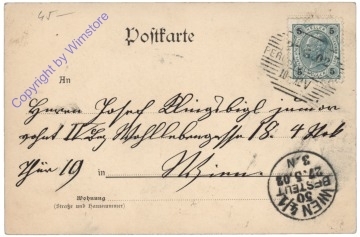 45-
Copyright by Wimstore
Postkarte
5 5
5 5
An
Herrn Josef Klingsbigl junior
IV Wohllebengasse 18. 4 Stock
Thür 19 in Wien
Wohnung
(Straße und Hausnummer)
WIEN 4/1
BESTELLT
50
27.5.02
3.N